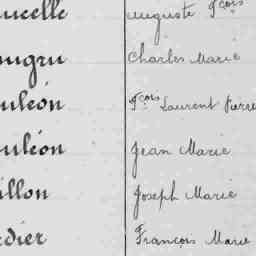 ucelle auguste Fçois
ugru Charles Marie
uléon Fçois Laurent Pierre
uléon Jean Marie
illon Joseph Marie
dier François Marie